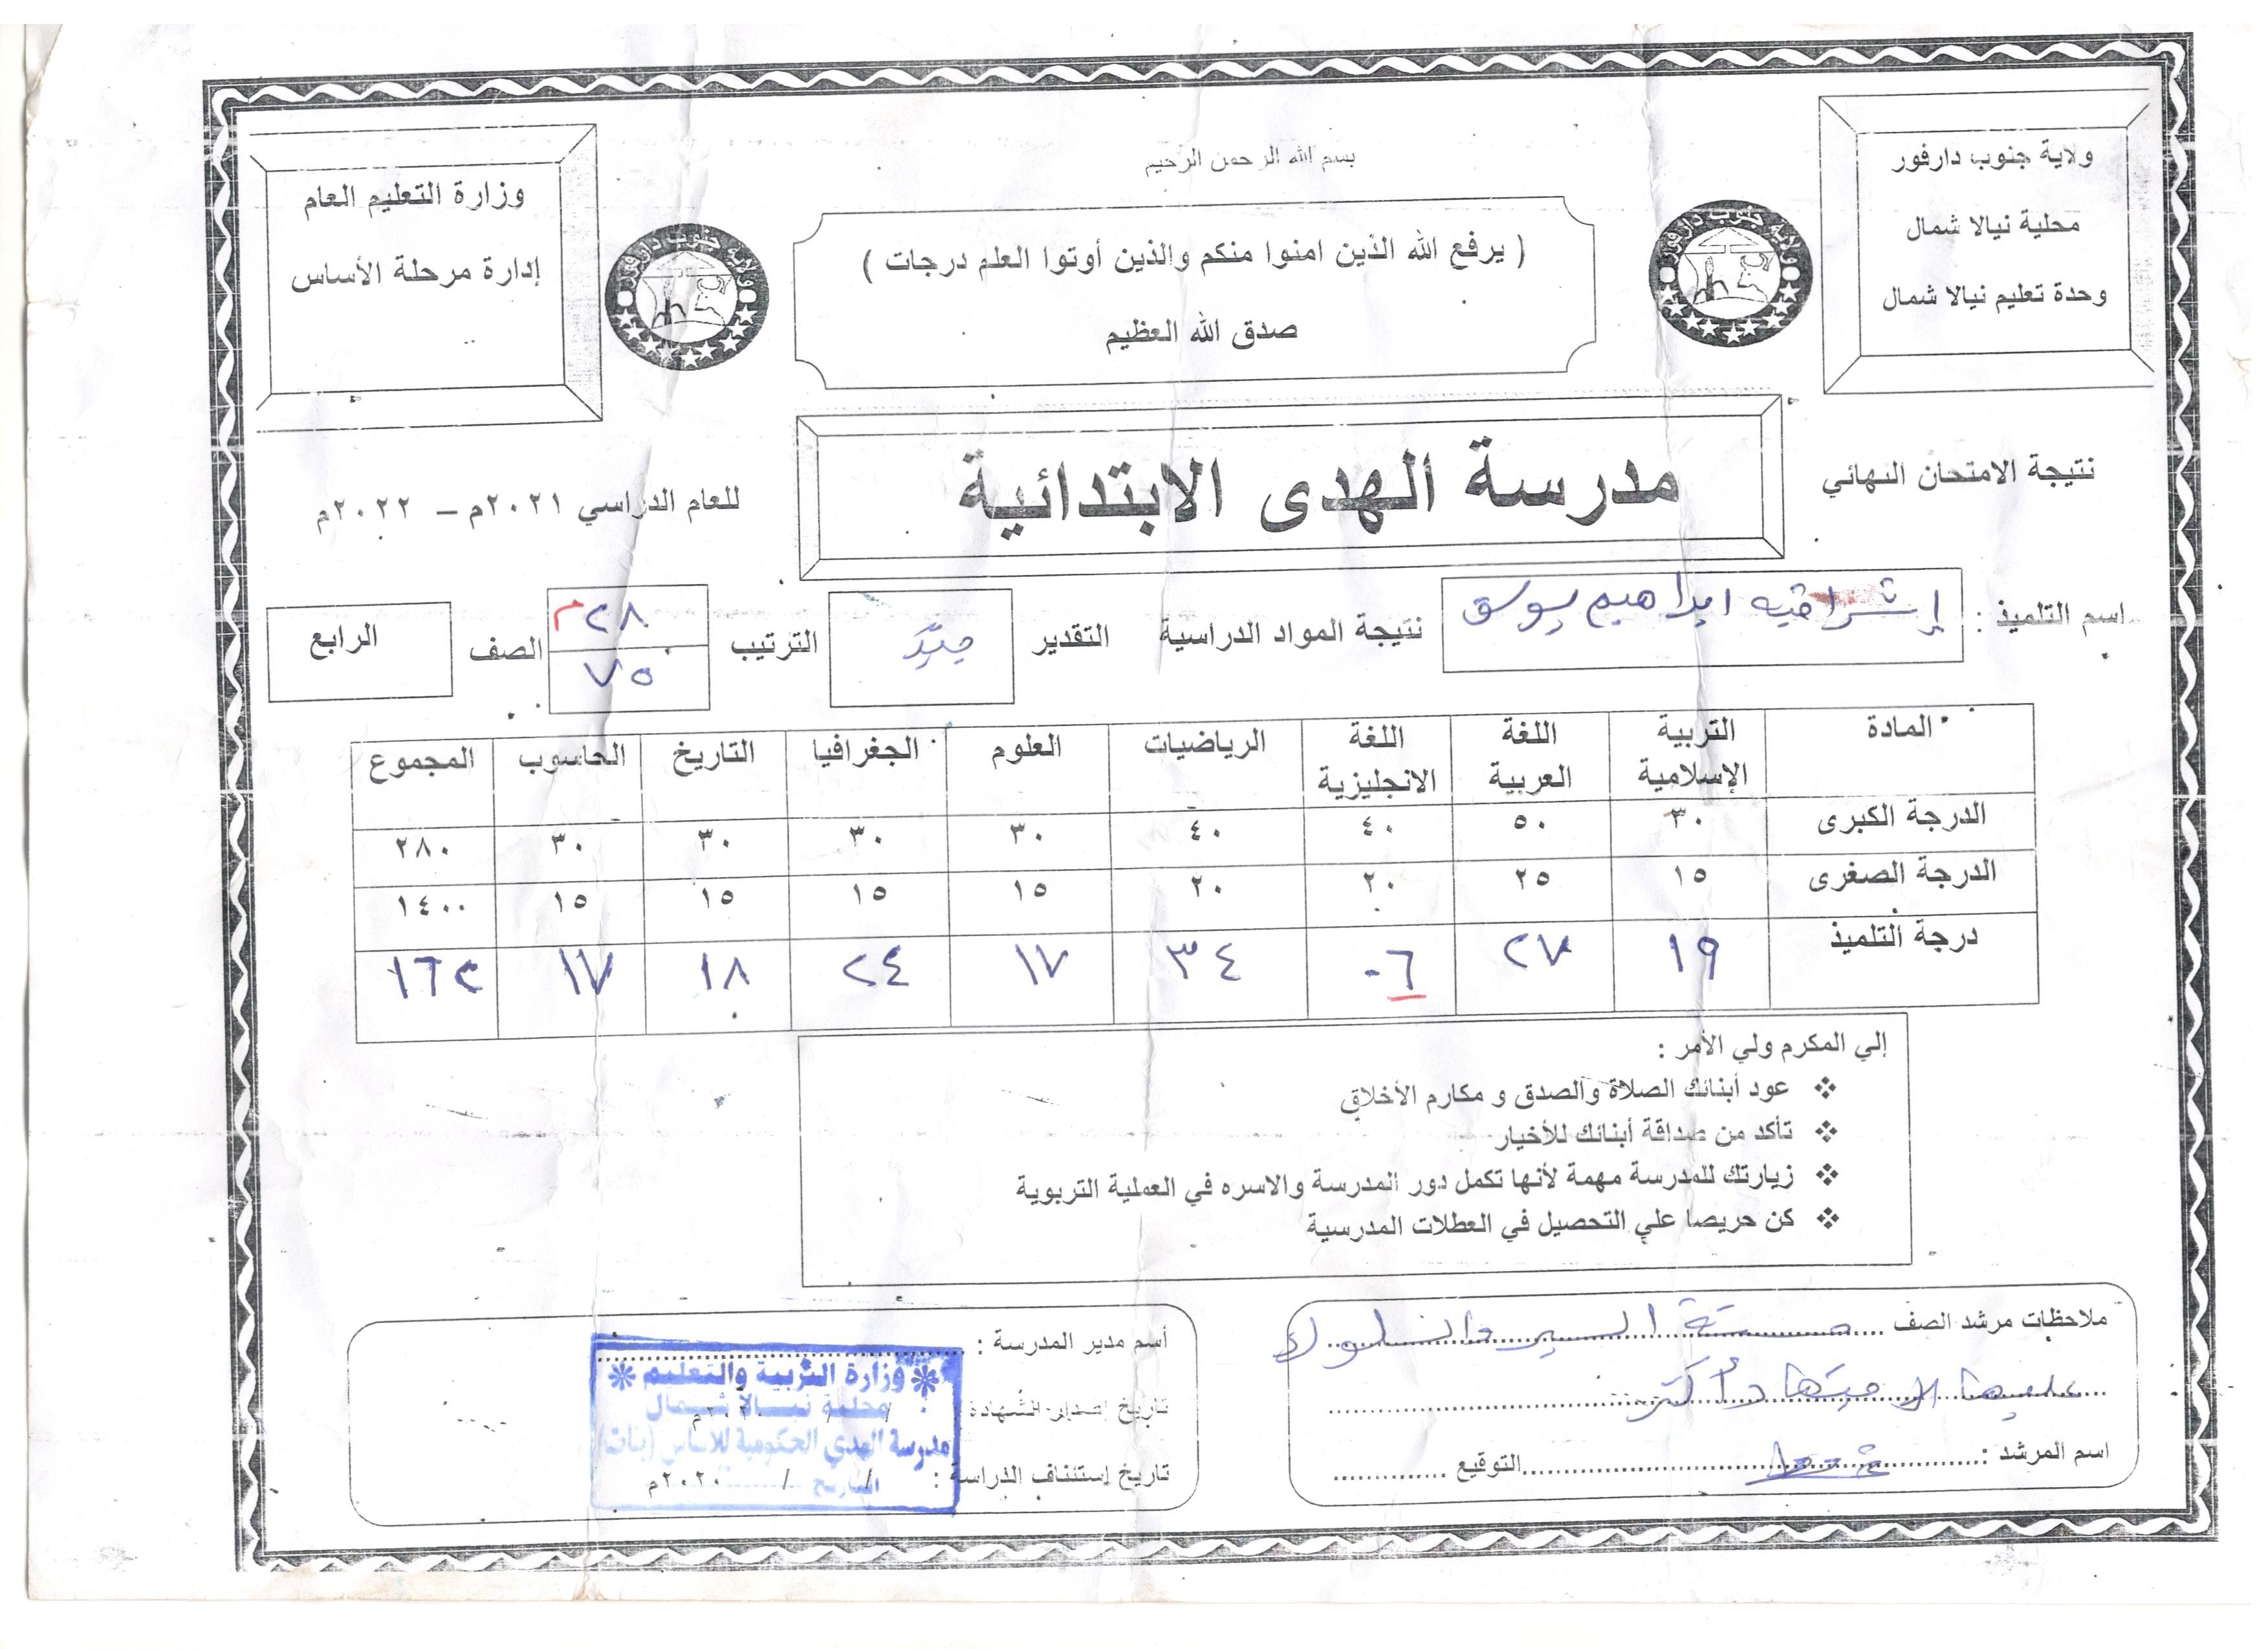 بسم الله الرحمن الرحيم
ولاية جنوب دارفور
محلية نيالا شمال
وحدة تعليم نيالا شمال
ولاية جنوب دارفور
( يرفع الله الذين امنوا منكم والذين أوتوا العلم درجات )
صدق الله العظيم
ولاية جنوب دارفور
وزارة التعليم العام
إدارة مرحلة الأساس
نتيجة الامتحان النهائي
مدرسة الهدى الابتدائية
للعام الدراسي ٢٠٢١م – ٢٠٢٢م
اسم التلميذ : إشراقيه ابراهيم يوسف
نتيجة المواد الدراسية التقدير جيد الترتيب ٢٨م ٧٥ الصف الرابع
المادة التربية الإسلامية اللغة العربية اللغة الانجليزية الرياضيات العلوم الجغرافيا التاريخ الحاسوب المجموع
الدرجة الكبرى ٣٠ ٥٠ ٤٠ ٤٠ ٣٠ ٣٠ ٣٠ ٣٠ ٢٨٠
الدرجة الصغرى ١٥ ٢٥ ٢٠ ٢٠ ١٥ ١٥ ١٥ ١٥ ١٤٠٠
درجة التلميذ ١٩ ٢٧ ٠٦ ٣٤ ١٧ ٢٤ ١٨ ١٧ ١٦٢
إلي المكرم ولي الأمر :
❖ عود أبنائك الصلاة والصدق و مكارم الأخلاق
❖ تأكد من صداقة أبنائك للأخيار
❖ زيارتك للمدرسة مهمة لأنها تكمل دور المدرسة والاسره في العملية التربوية
❖ كن حريصا علي التحصيل في العطلات المدرسية
ملاحظات مرشد الصف حسنة السير والسلوك
عليها الاجتهاد أكثر
اسم المرشد : التوقيع
أسم مدير المدرسة :
تاريخ إصدار الشهادة / / ٢٠٢٠م
تاريخ إستئناف الدراسة : / / ٢٠٢٠م
وزارة التربية والتعليم
محلية نيالا شمال
مدرسة الهدي الحكومية للاساس (بنات)
التاريخ